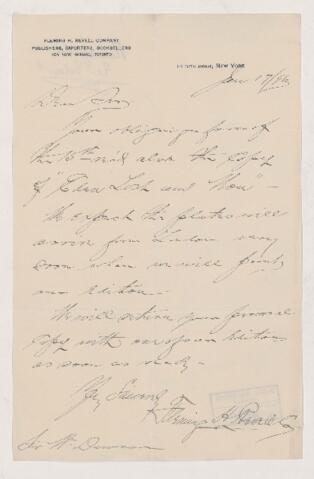 FLEMING H. REVELL COMPANY
PUBLISHERS, IMPORTERS, BOOKSELLERS
NEW YORK, CHICAGO, TORONTO
FIFTH AVENUE, NEW YORK
Jan 17/96
Dear Sir
Your obliging favor of
the 15th rec'd also the Copy
of "Eden Lost and Won" -
We expect the plates will
arrive from London very
soon when we will print
our Edition -
We will return your personal
Copy with our own Edition
as soon as ready -
Yrs Sincerely
Fleming H Revell Co
Sir Wm Dawson